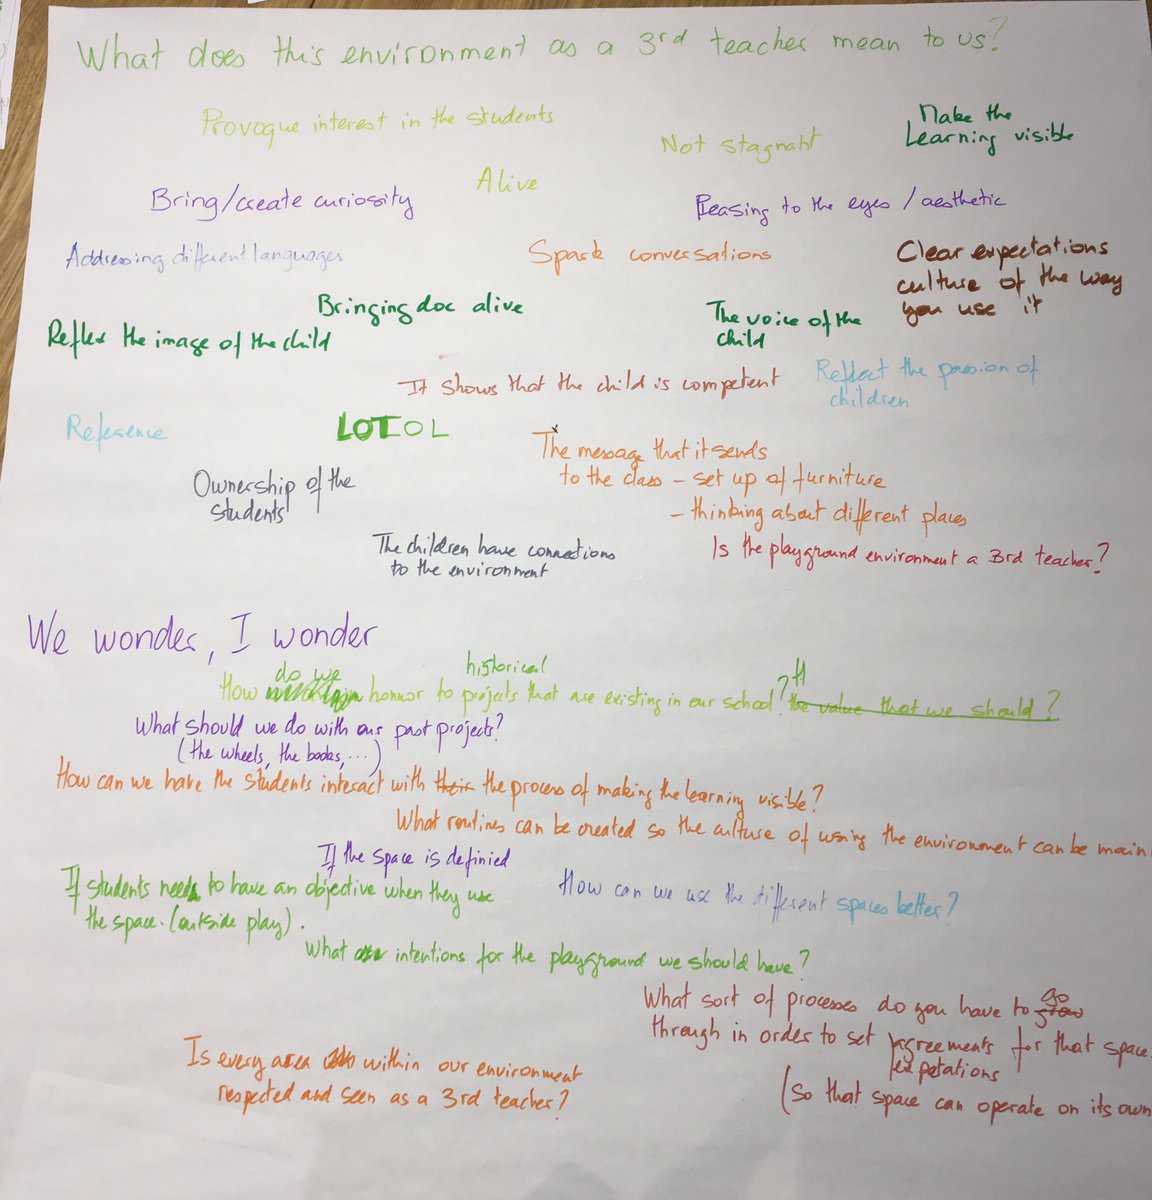 What does this environment as a 3rd teacher mean to us?
Provoque interest in the students
Not stagnant
Make the
Learning visible
Alive
Bring/create curiosity
Pleasing to the eyes / aesthetic
Addressing different languages
Spark conversations
Clear expectations
culture of the way
you use it
Bringing doc alive
The voice of the
child
Reflex the image of the child
It shows that the child is competent
Reflect the passion of
children
Reference
LOTCOL
The message that it sends
to the class - set up of furniture
- thinking about different places
Ownership of the
students
The children have connections
to the environment
Is the playground environment a 3rd teacher?
We wonder, I wonder
How do we honnor to historical projects that are existing in our school? the value that we should?
What should we do with our past projects?
(the wheels, the books, ...)
How can we have the students interact with their the process of making the learning visible?
What routines can be created so the culture of using the environment can be main
If the space is definied
If students needs to have an objective when they use
the space. (outside play).
How can we use the different spaces better?
What intentions for the playground we should have?
What sort of processes do you have to go
through in order to set agreements for that space.
expetations
(so that space can operate on its own
Is every area within our environment
respected and seen as a 3rd teacher?